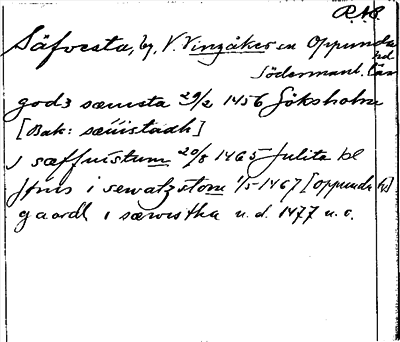 R.A.P.
Säfvesta, by, V. Vingåker sn Oppunda
hd
Södermanl. län
godz sæuista 29/2 1456 Göksholm
[Bak: sæuistadh]
J sæffuistum 20/8 1465 Julita kl
Jtms i sewatzstom 1/5 1467 [Oppunda h]
gaardh i sæwistha u.d. 1477 u.o.